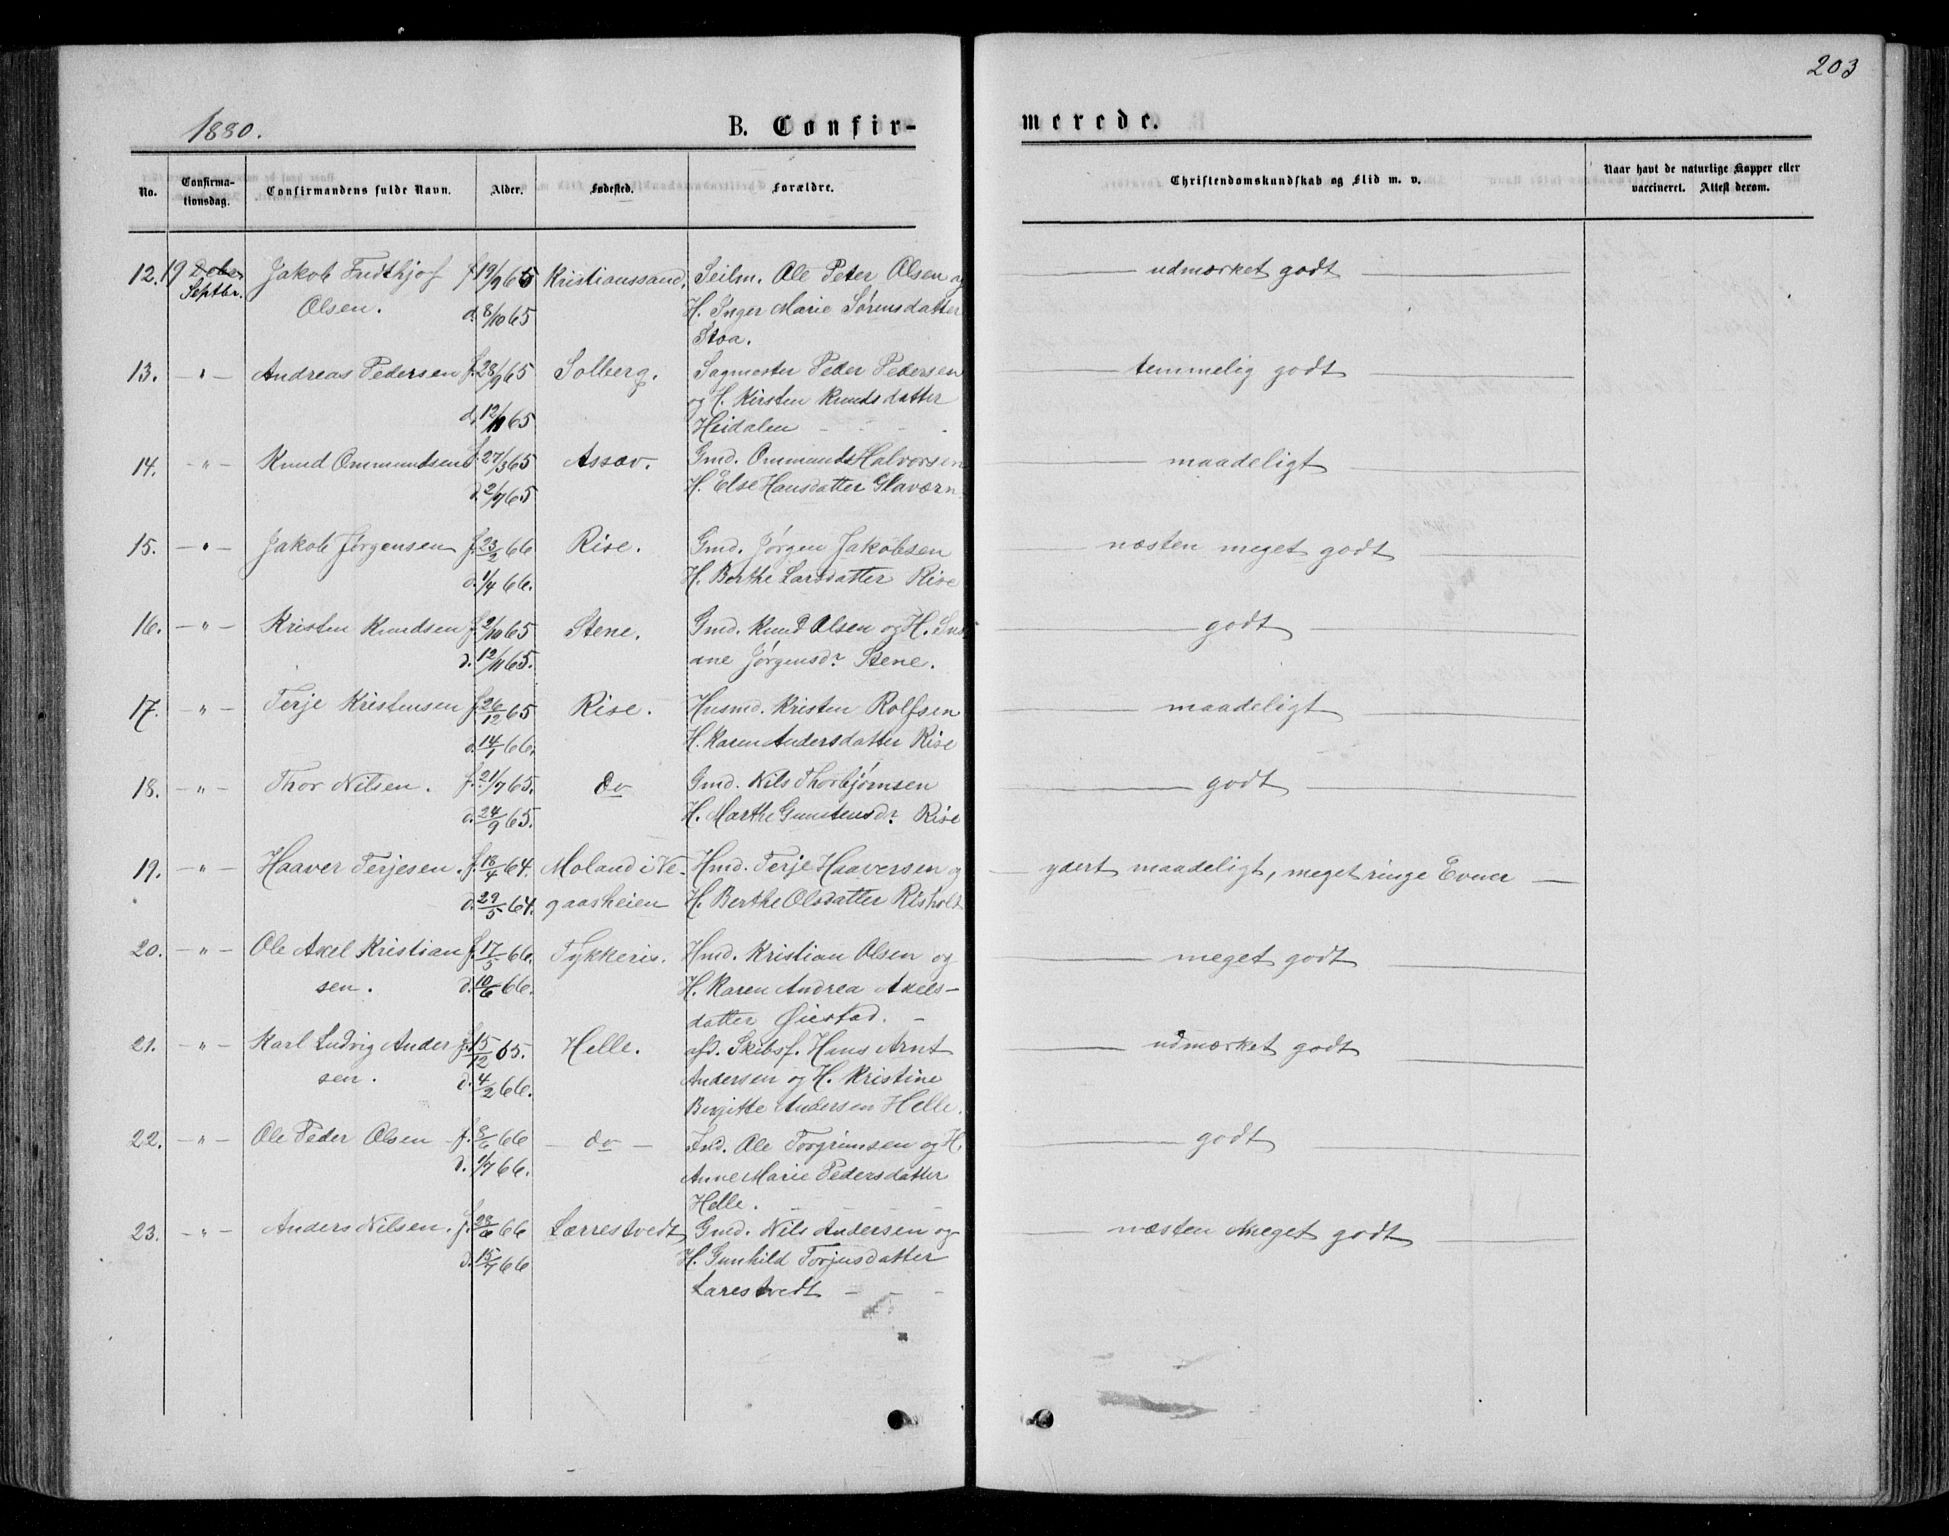 203
1880.
B. Confir-
merede.
No.
Confirma-
tionsdag.
Confirmandens fulde Navn.
Alder.
Fødested.
Forældre.
Christendomskundskab og Flid m. v.
Naar havt de naturlige Kopper eller
vaccineret. Attest derom.
12. 19 Jakob Fridthjof f. 19/9 65 Kristianssand. Seilm. Ole Peter Olsen og — udmærket godt —
Septbr. Olsen. d. 8/10 65 H. Inger Marie Sørensdatter
Stoa.
13. — " — Andreas Pedersen f. 28/9 65 Solberg. Sagmester Peder Pedersen — temmelig godt —
d. 12/11 65 og H. Kirsten Knudsdatter
Heidalen
14. — " — Knud Ommundsen f. 27/3 65 Assæv. Gmd. Ommund Halvorsen — maadeligt —
d. 2/7 65 H. Else Hansdatter Glaværn
15. — " — Jakob Jørgensen f. 23/2 66 Rise. Gmd. Jørgen Jakobsen — næsten meget godt —
d. 1/4 66. H. Berthe Larsdatter Rise
16. — " — Kristen Knudsen f. 2/10 65 Stene. Gmd. Knud Olsen og H. Sus — godt —
d. 12/11 65. ane Jørgensdr. Stene.
17. — " — Terje Kristensen f. 26/12 65 Rise. Husmd. Kristen Rolfsen — maadeligt —
d. 14/1 66. H. Karen Andersdatter Rise
18. — " — Thor Nilsen. f. 21/7 65. do Gmd. Nils Thorbjørnsen — godt —
d. 24/9 65. H. Marthe Gunstensdr. Rise
19. — " — Haaver Terjesen. f. 18/4 64. Moland i Ve- Hmd. Terje Haaversen og — ydert maadeligt, meget ringe Evner —
d. 29/5 64. gaasheien H. Berthe Olsdatter Risholt
20. — " — Ole Axel Kristian f. 17/5 66. Tykkeris. Hmd. Kristian Olsen og — meget godt —
sen. d. 10/6 66. H. Karen Andrea Axels-
datter Øiestad. —
21. — " — Karl Ludvig Ander f. 15/12 65. Helle. afd. Skibsf. Hans Arnt — udmærket godt —
sen. d. 4/2 66. Andersen og H. Kristine
Birgitte Andersen Helle.
22. — " — Ole Peder Olsen f. 8/6 66 — do — Ole Torgrimsen og H. — godt —
d. 1/7 66. Anne Marie Pedersdatter
Helle.
23. — " — Anders Nilsen. f. 28/6 66 Lærrestvedt Gmd. Nils Andersen og — næsten meget godt —
d. 15/7 66 H. Gunhild Torjusdatter
Larestvedt —